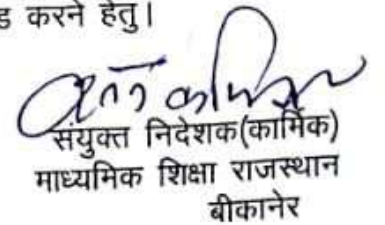 ड करने हेतु।
संयुक्त निदेशक(कार्मिक)
माध्यमिक शिक्षा राजस्थान
बीकानेर